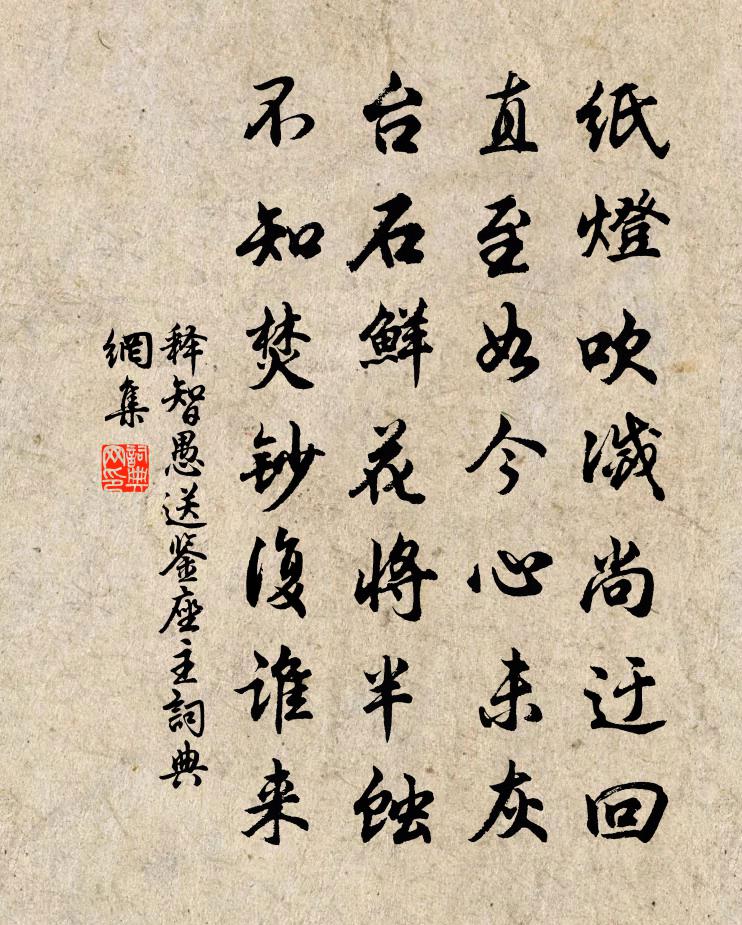 纸燈吹滅尚迂回
直至如今心未灰
台石鮮花将半蝕
不知焚鈔復誰来
释智愚送鉴座主詞典
網集
詞典
网印